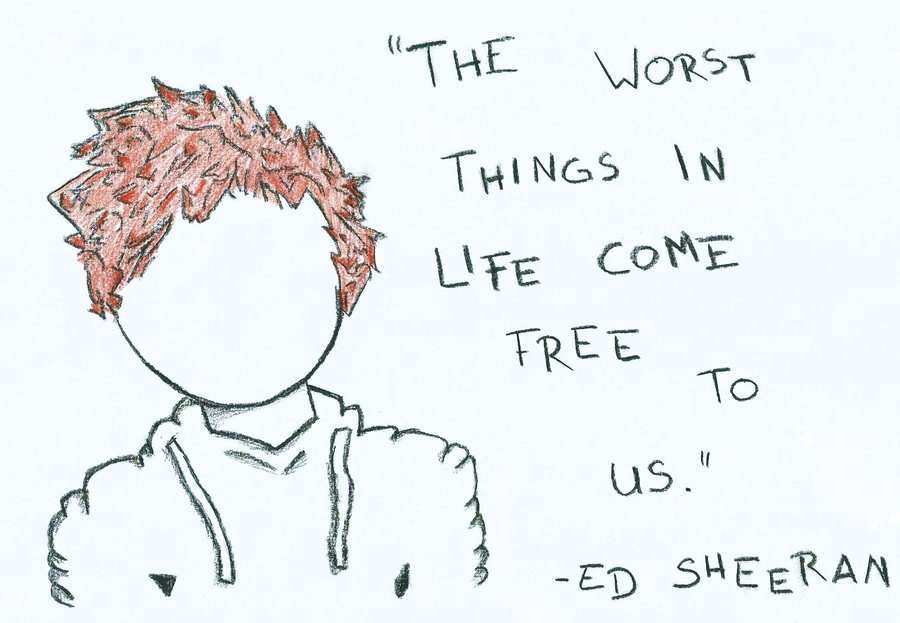 "THE WORST
THINGS IN
LIFE COME
FREE
TO
US."
-ED SHEERAN